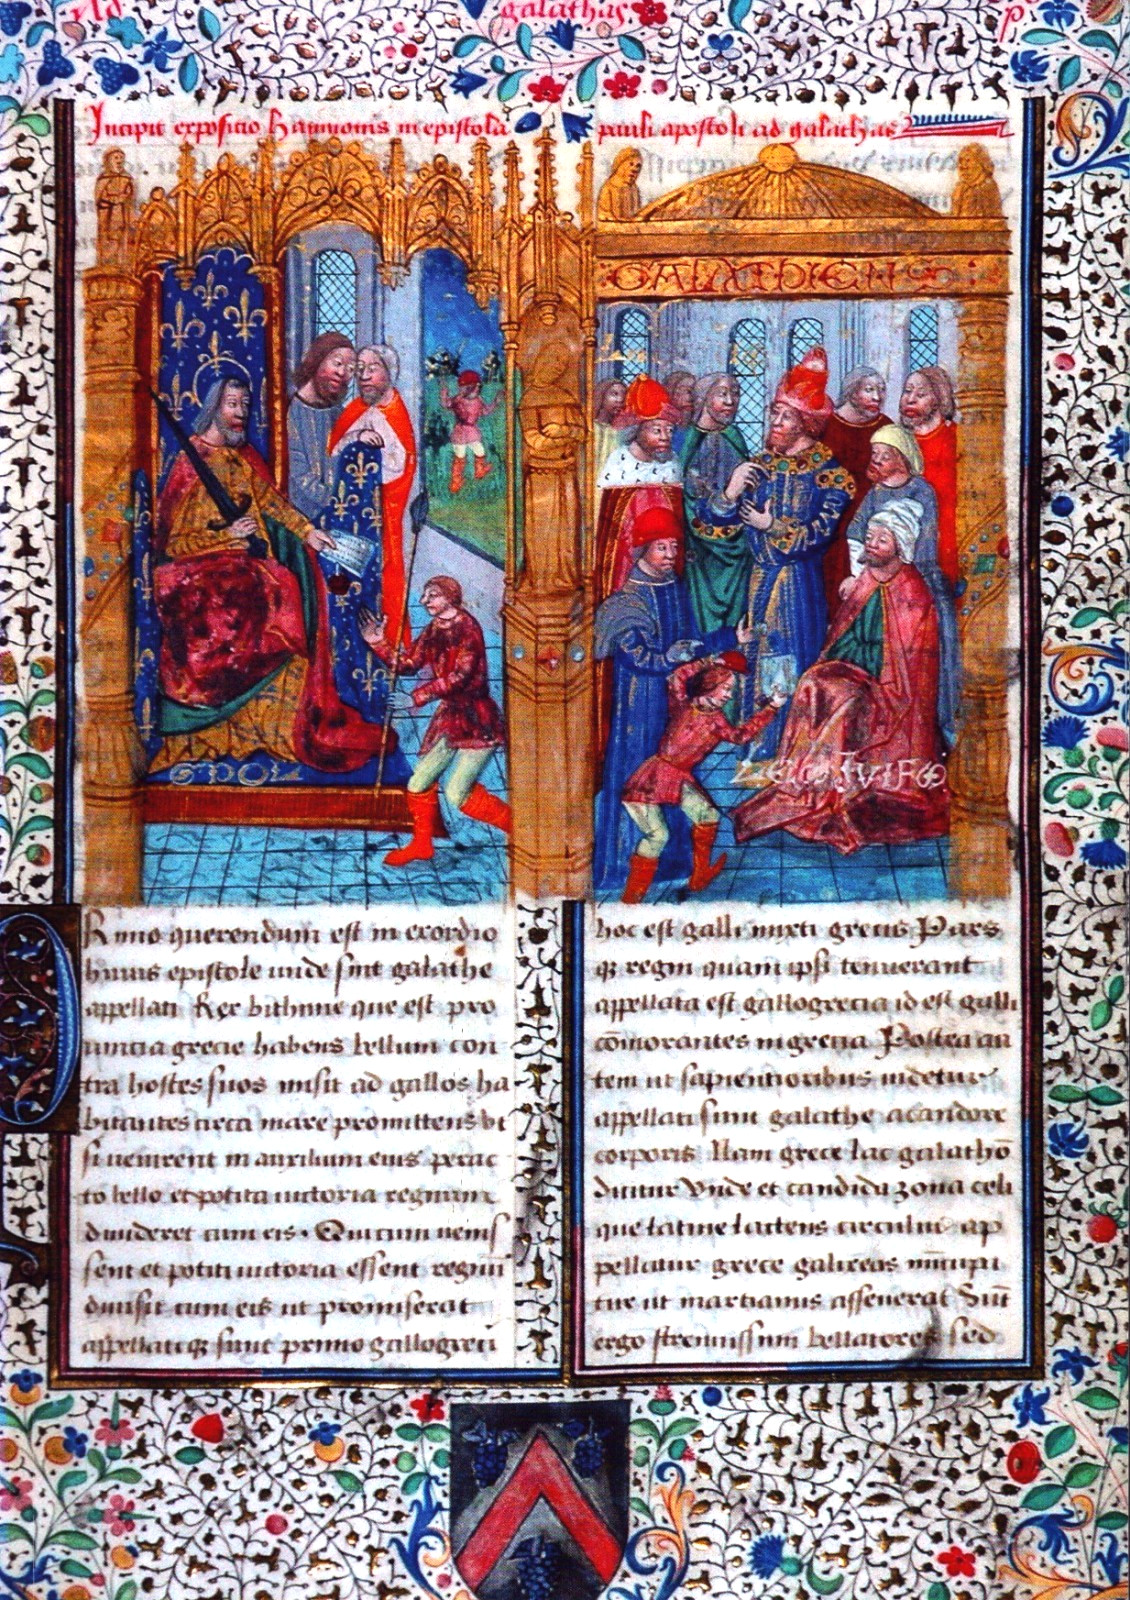 Ad galathas.
Incipit expositio haimonis in epistola
pauli apostoli ad galathas
GALATHIENS
Rimo querendum est in exordio
huius epistole unde sint galathe
appellati Rex bithinie que est pro
uincia grecie habens bellum con
tra hostes suos misit ad gallos ha
bitantes circa mare promittens ut
si uenirent in auxilium eius perac
to bello et potita uictoria regnum
diuideret cum eis. Qui cum uenis
sent et potiti uictoria essent regnū
diuisit cum eis ut promiserat
appellatiq; sunt primo gallogreci
hoc est galli mixti grecis Pars
q; regni quam ipsi tenuerant
appellata est gallogrecia id est galli
cōmorantes in grecia Postea au
tem ut sapientioribus uidetur
appellati sunt galathe a candore
corporis Nam grece lac galathō
dicitur Vnde et candida zona celi
que latine lacteus circulus ap
pellatur grece galixeas nūcupa
tur ut martianus asseuerat Sūt
ergo strenuissimi bellatores sed